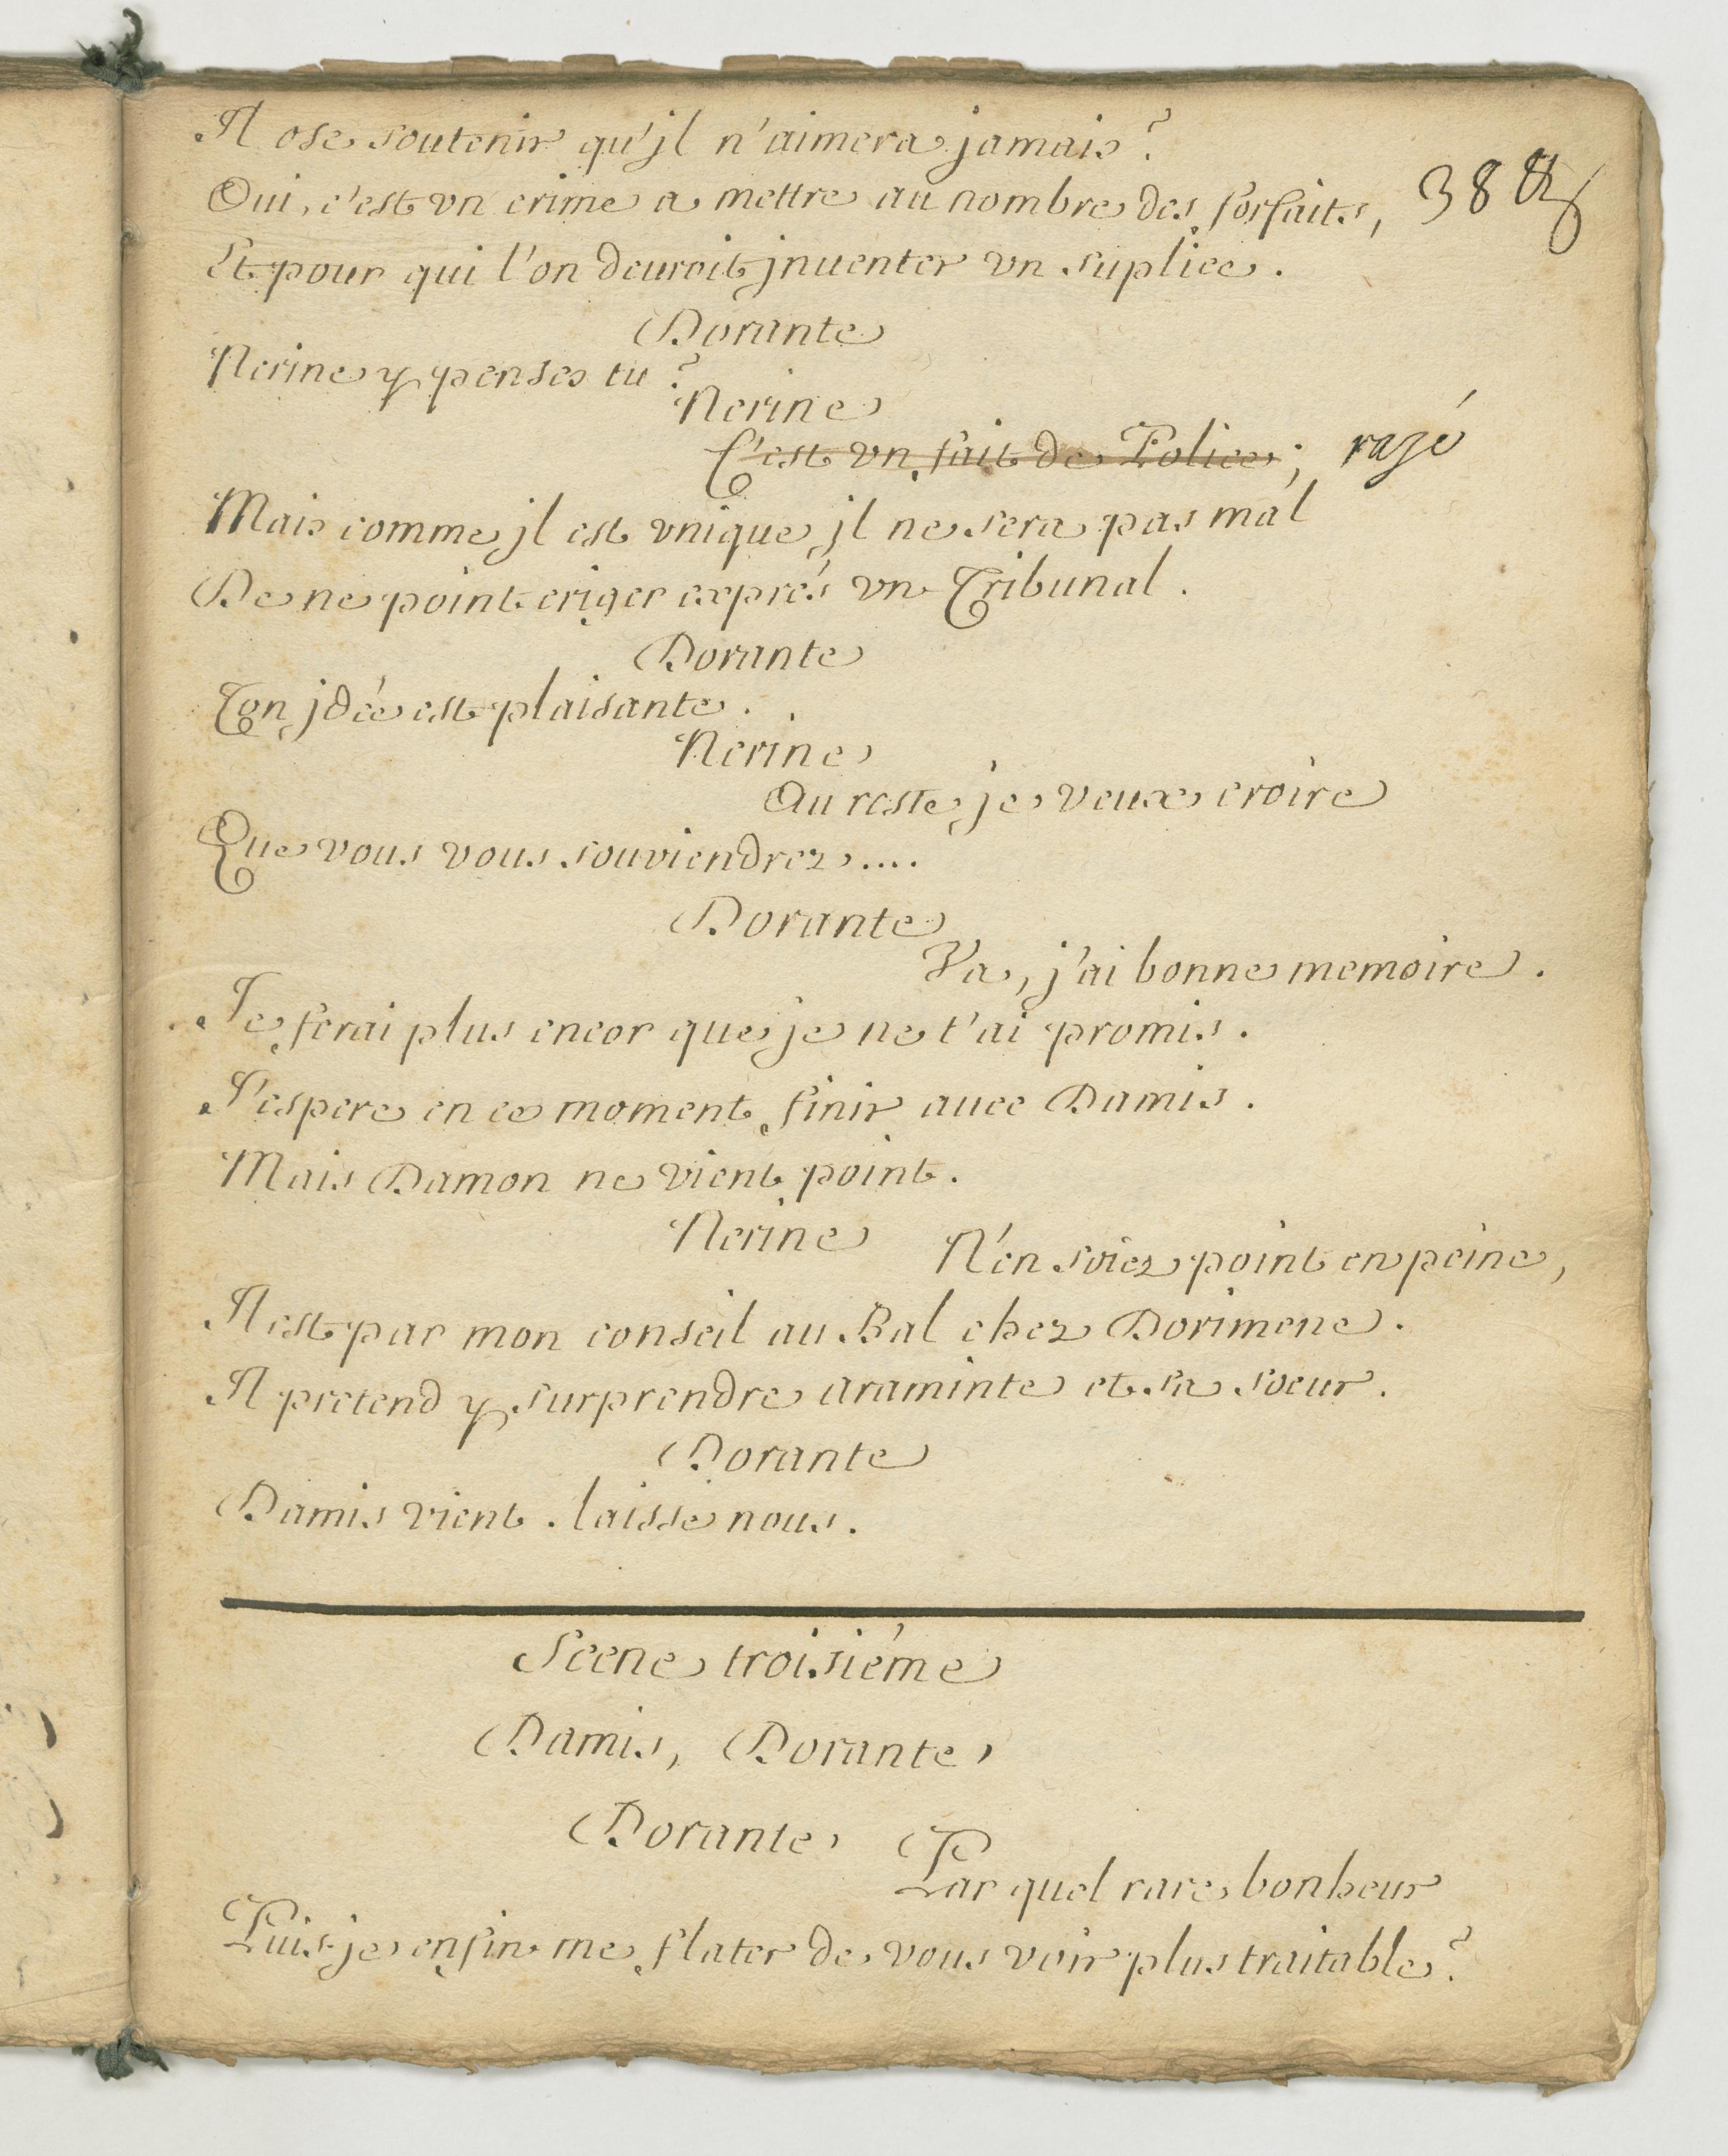 Il ose soutenir qu'jl n'aimera jamais?
Oui, c'est vn crime a mettre au nombre des forfaits, 38
Et pour qui l'on deuroit jnuenter vn suplice.
Dorante
Nerine y penses tu?
Nerine
C'est vn fait de Police; rajé
Mais comme jl est vnique, jl ne sera pas mal
De ne point eriger exprés vn Tribunal.
Dorante
Ton jdée est plaisante.
Nerine
Au reste, je veux croire
Que vous vous souviendrez....
Dorante
Va, j'ai bonne memoire.
Je ferai plus encor que je ne t'ai promis.
J'espere en ce moment finir auec Damis.
Mais Damon ne vient point.
Nerine N'en soiez point en peine,
Il est par mon conseil au Bal chez Dorimene.
Il pretend y surprendre araminte et sa soeur.
Dorante
Damis vient. laisse nous.
Scene troisiéme
Damis, Dorante
Dorante
Par quel rare bonheur
Puis-je enfin me flater de vous voir plus traitable?